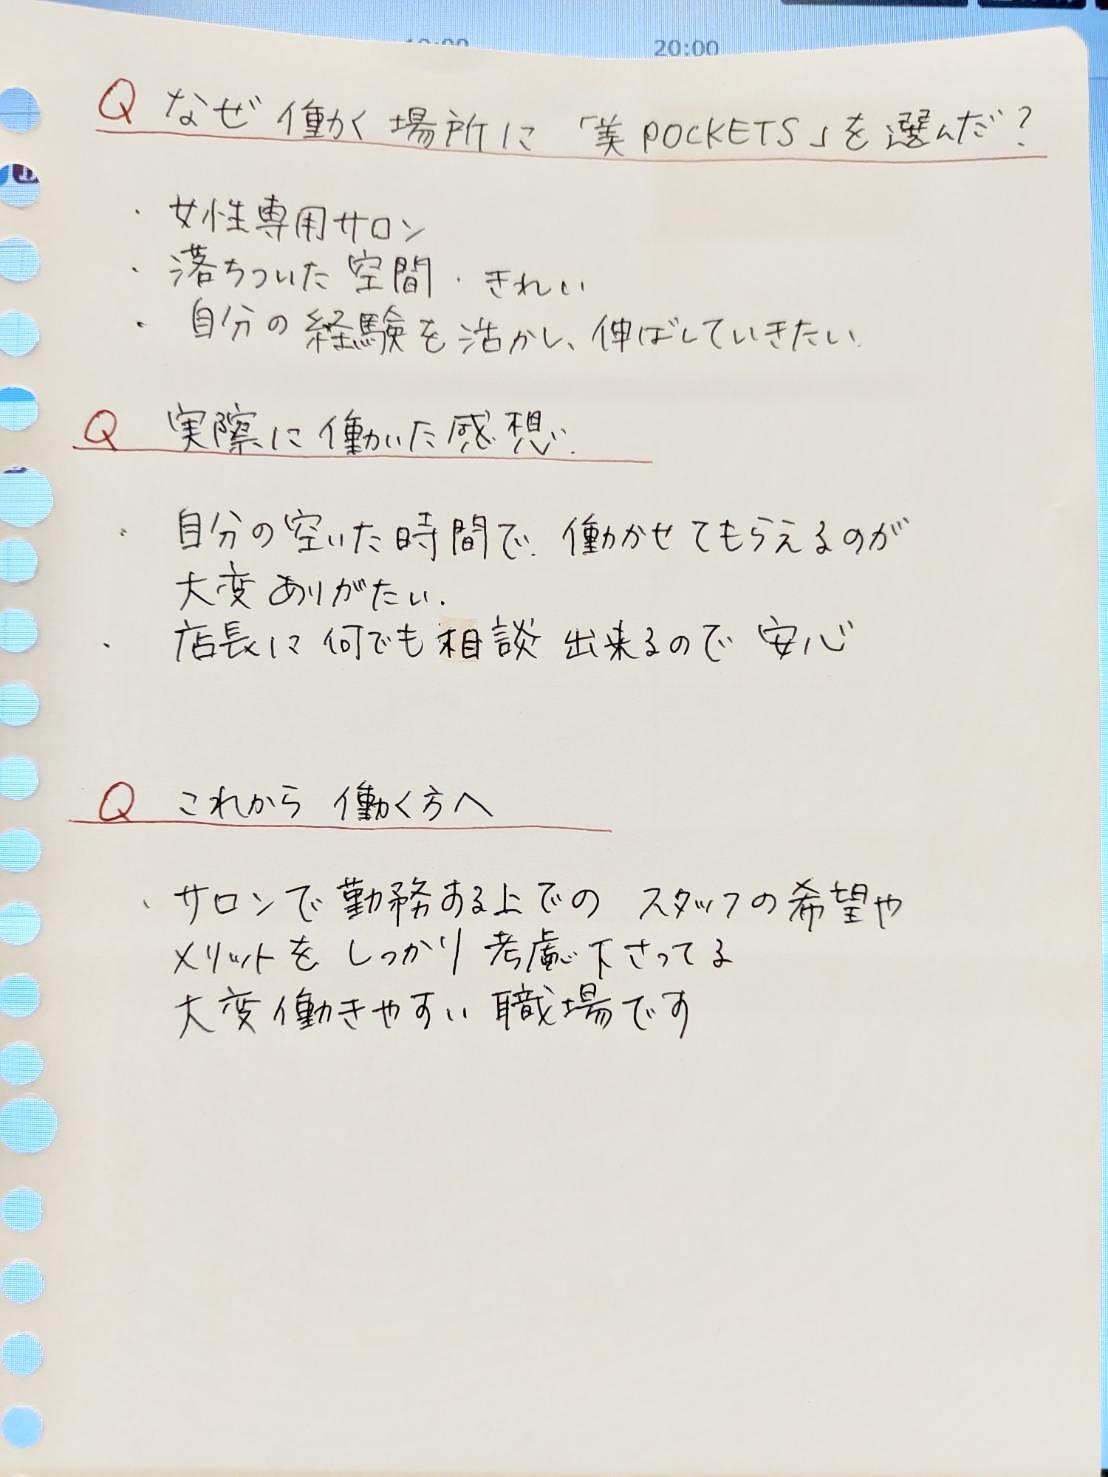 20:00
Q なぜ働く場所に「美POCKETS」を選んだ?
・女性専用サロン
・落ちついた空間・きれい
・自分の経験を活かし、伸ばしていきたい
Q 実際に働いた感想.
・自分の空いた時間で、働かせてもらえるのが
大変ありがたい.
・店長に何でも相談出来るので安心
Q これから働く方へ
・サロンで勤務ある上でのスタッフの希望や
メリットをしっかり考慮下さってる
大変働きやすい職場です